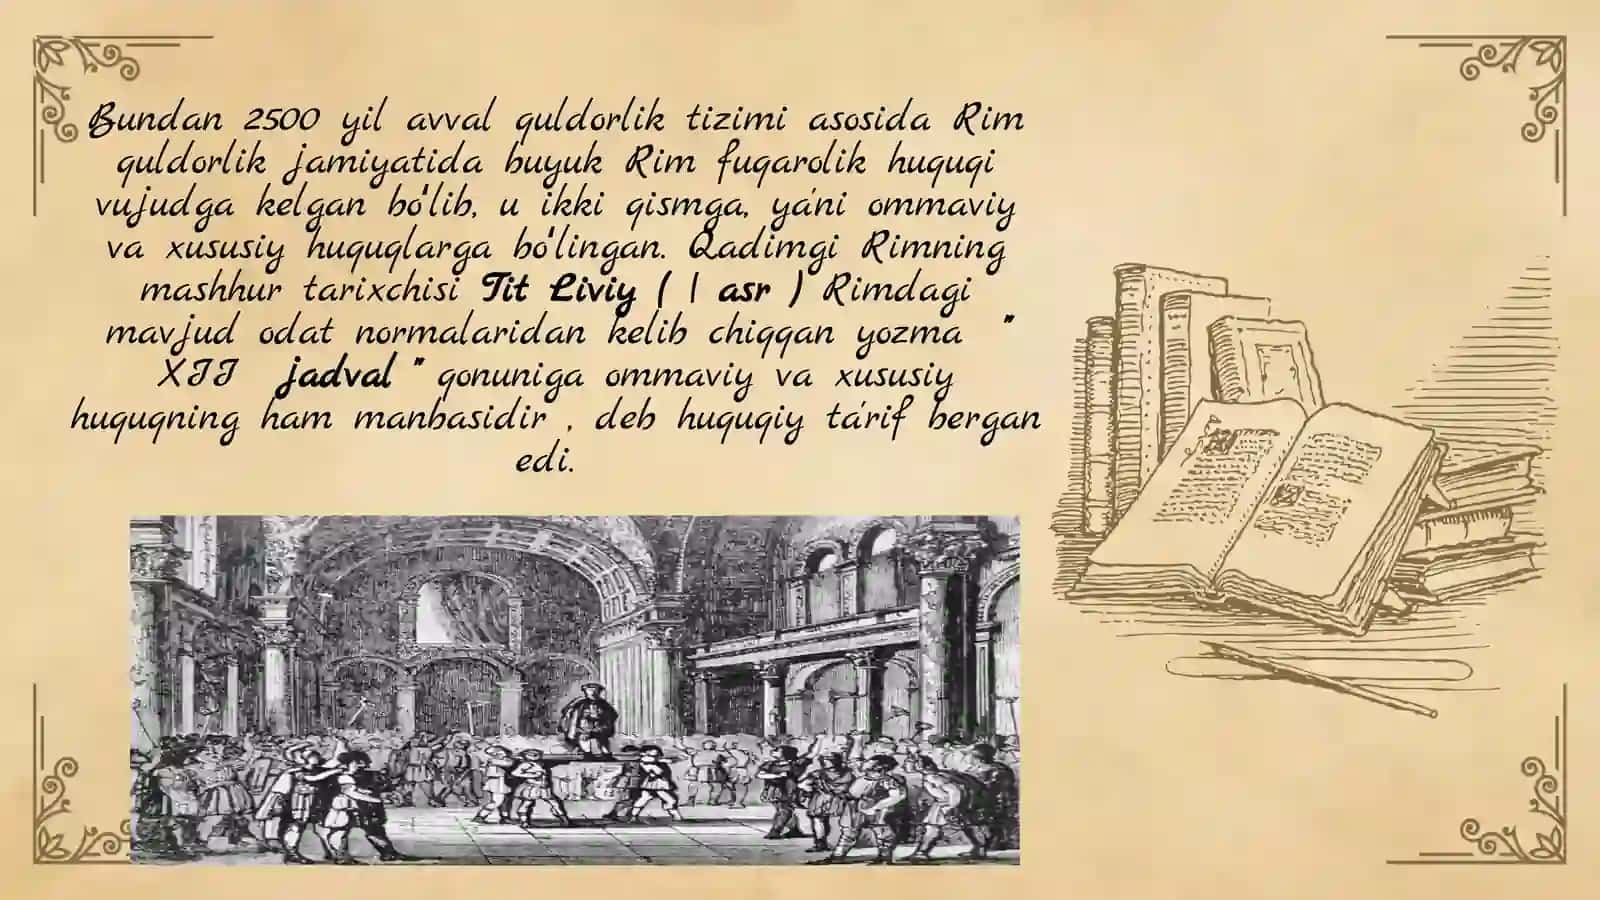 Bundan 2500 yil avval quldorlik tizimi asosida Rim
quldorlik jamiyatida buyuk Rim fuqarolik huquqi
vujudga kelgan bo'lib, u ikki qismga, ya'ni ommaviy
va xususiy huquqlarga bo'lingan. Qadimgi Rimning
mashhur tarixchisi Tit Liviy ( I asr ) Rimdagi
mavjud odat normalaridan kelib chiqqan yozma "
XII jadval " qonuniga ommaviy va xususiy
huquqning ham manbasidir , deb huquqiy ta'rif bergan
edi.